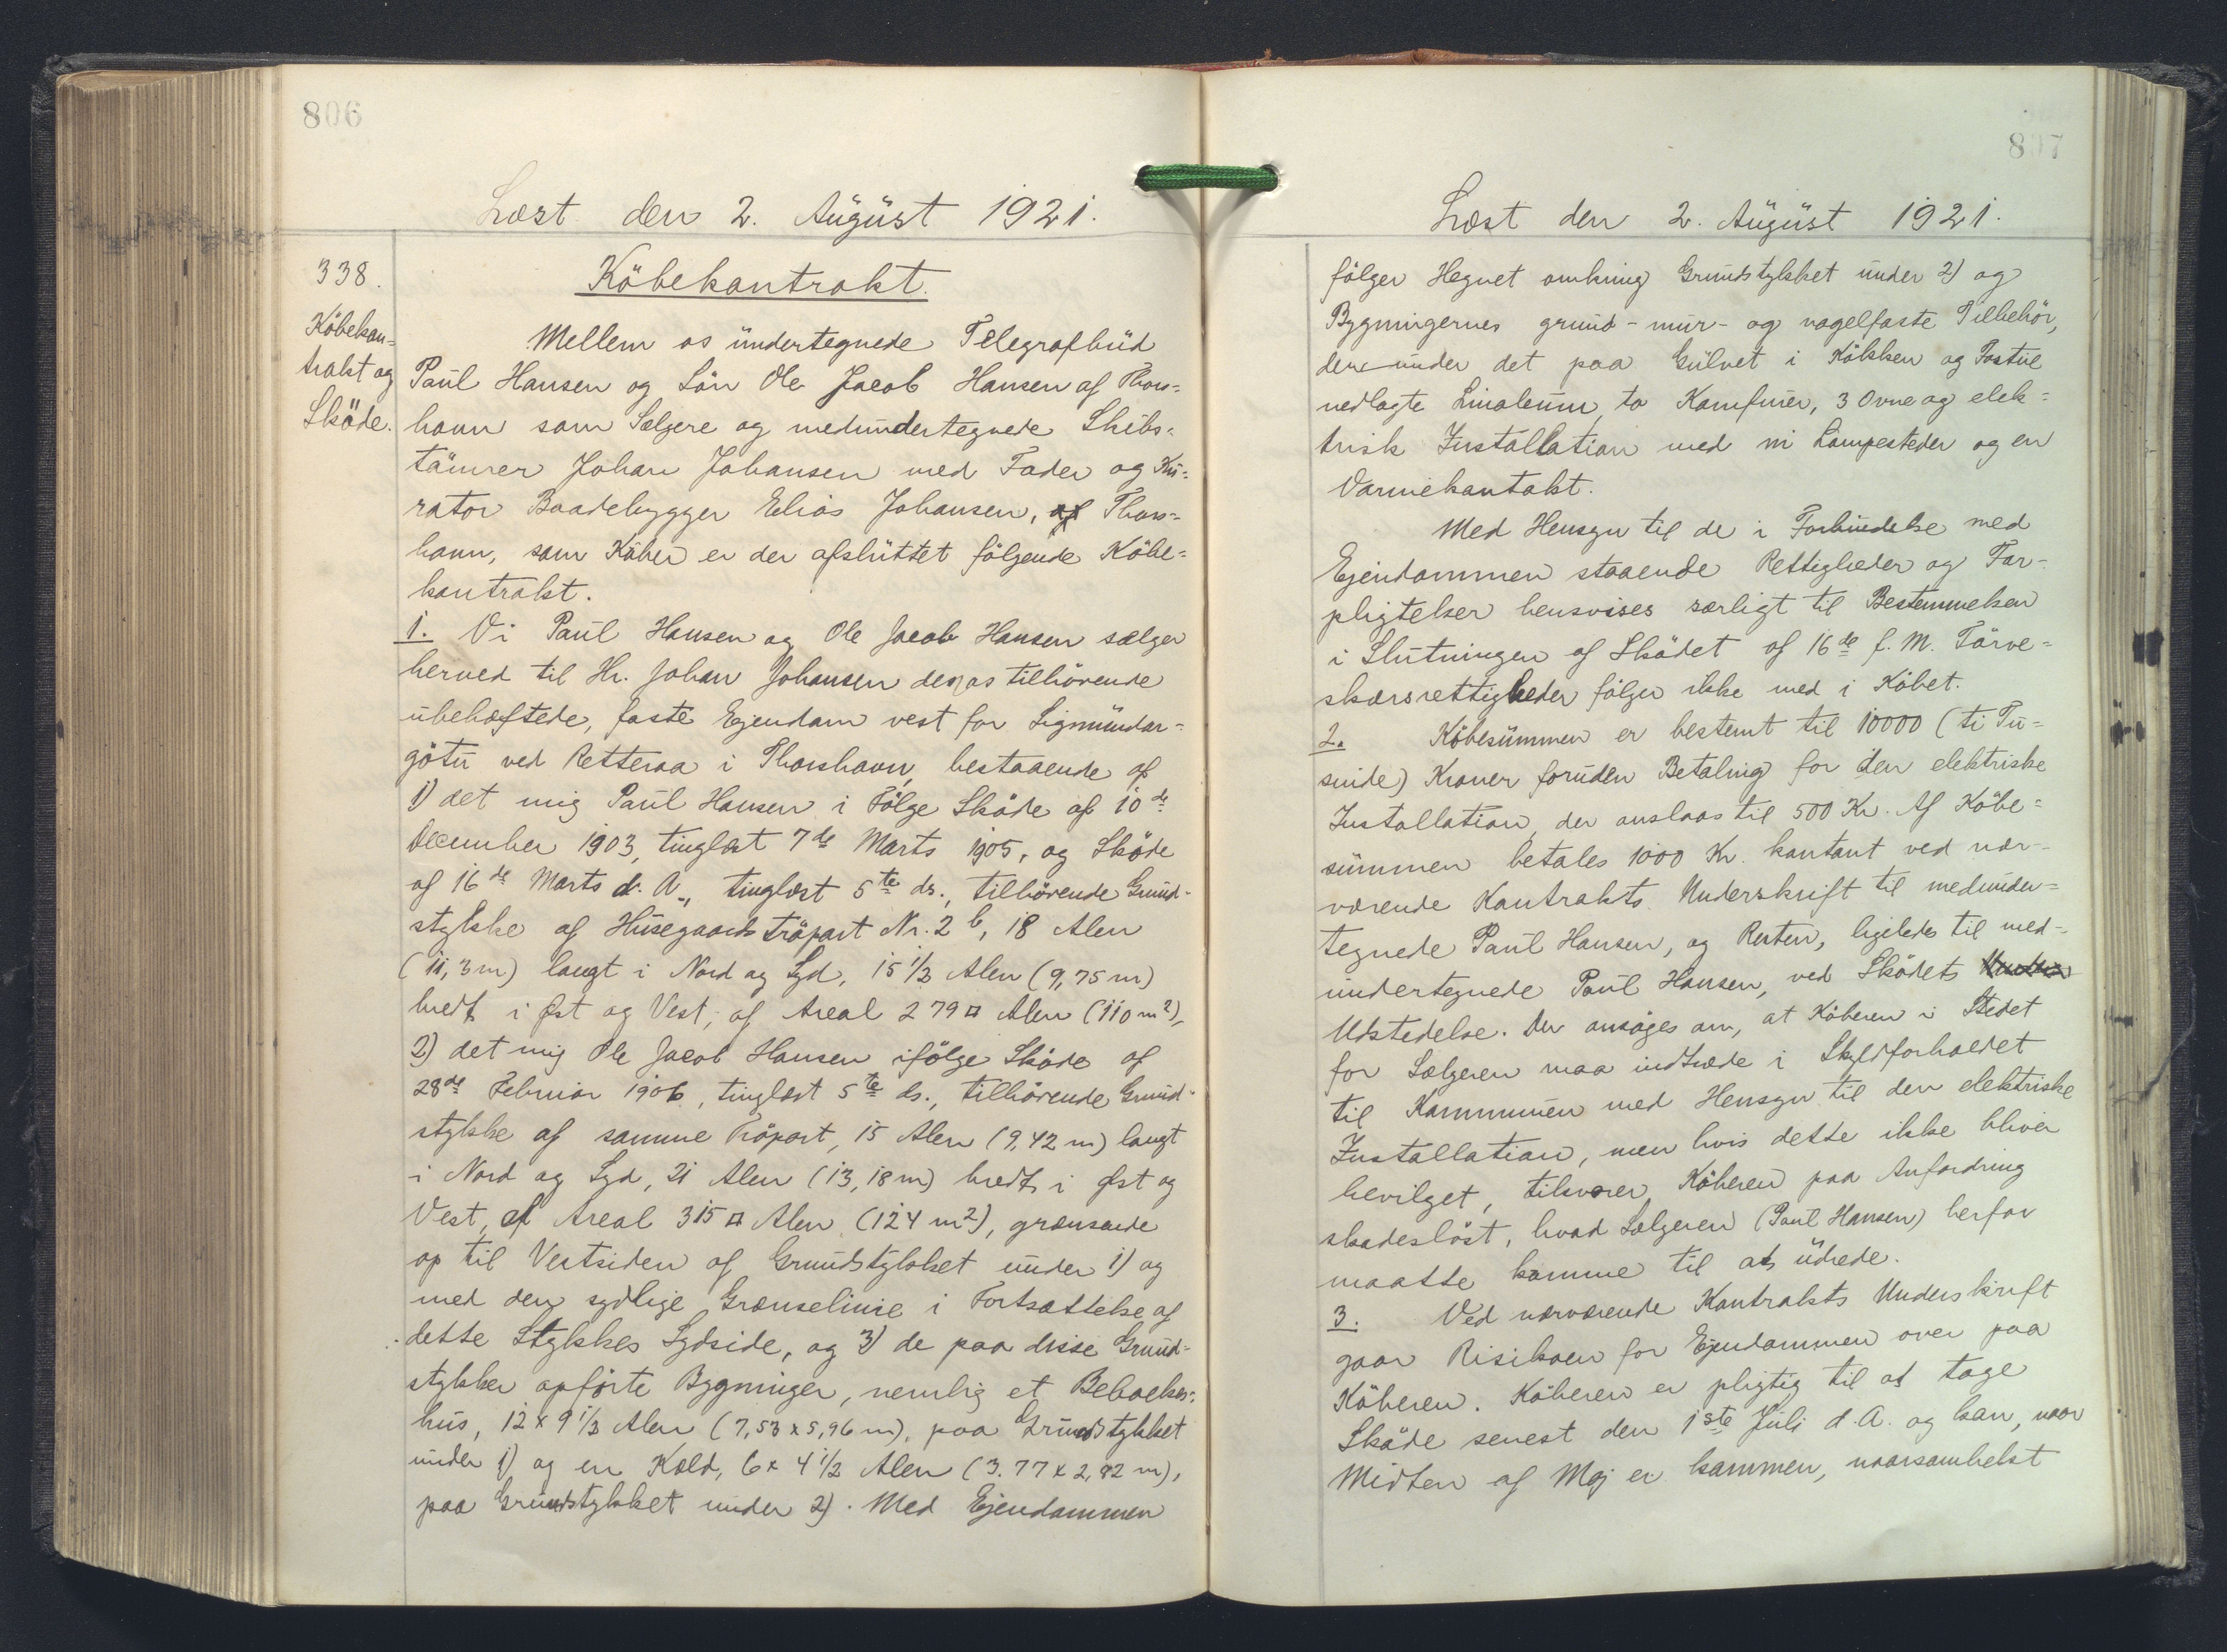 806
Læst den 2. August 1921.
338.
Köbekan=
trakt og
Sköde.
Köbekontrakt.
Mellem os undertegnede Telegrafbud
Paul Hansen og Sön Ole Jacob Hansen af Thors=
havn som Sælgere og medundertegnede Skibs=
tömrer Johan Johansen med Fader og Ku=
rator Baadebygger Elias Johansen, af Thors=
havn, som Köber er der afsluttet fölgende Köbe=
kontrakt.
1. Vi Paul Hansen og Ole Jacob Hansen sælger
herved til Hr. Johan Johansen den os tilhörende
ubehæftede, faste Ejendom vest for Sigmundar=
götu ved Retteraa i Thorshavn, bestaaende af
1) det mig Paul Hansen i Fölge Sköde af 10de
December 1903, tinglæst 7de Marts 1905, og Sköde
af 16de Marts d. A., tinglæst 5te ds., tilhörende Grund-
stykke af Husegaards tröpart Nr. 2 b, 18 Alen
(11,3 m) langt i Nord og Syd, 15 1/2 Alen (9,75 m)
bredt i Øst og Vest, af Areal 279 □ Alen (110 m2),
2) det mig Ole Jacob Hansen ifölge Sköde af
28de Februar 1906, tinglæst 5te ds., tilhörende Grund-
stykke af samme Tröpart, 15 Alen (9,42 m) langt
i Nord og Syd, 21 Alen (13,18 m) bredt i Øst og
Vest, af Areal 315 □ Alen (124 m2), grænsende
op til Vestsiden af Grundstykket under 1) og
med den sydlige Grænselinie i Fortsættelse af
dette Stykkes Sydside, og 3) de paa disse Grund-
stykker opførte Bygninger, nemlig et Beboelses-
hus, 12 x 9 1/2 Alen (7,53 x 5,96 m), paa Grundstykket
under 1) og en Kold, 6 x 4 1/2 Alen (3.77 x 2,82 m),
paa Grundstykket under 2). Med Ejendommen
807
Læst den 2. August 1921.
fölger Hegnet omkring Grundstykket under 2) og
Bygningernes grund- mur- og nagelfaste Tilbehör,
derunder det paa Gulvet i Kökken og Fostue
nedlagte Linoleum, to Komfurer, 3 Ovne og elek=
trisk Installation med ni Lampesteder og en
Varmekontakt.
Med Hensyn til de i Forbindelse med
Ejendommen staaende Rettigheder og For-
pligtelser henvises særligt til Bestemmelsen
i Slutningen af Skødet af 16de f. M. Törve=
skærsrettigheder fölger ikke med i Köbet.
2. Köbesummen er bestemt til 10000 (ti Tu=
sinde) Kroner foruden Betaling for den elektriske
Installation, der anslaas til 500 Kr. Af Köbe=
summen betales 1000 Kr. kontant ved nær-
værende Kontrakts Underskrift til medunder=
tegnede Paul Hansen, og Resten, ligeledes til med=
undertegnede Paul Hansen, ved Skødets
Udstedelse. Der ansöges om, at Köberen i Stedet
for Sælgeren maa indtræde i Skyldforholdet
til Kommunen med Hensyn til den elektriske
Installation, men hvis dette ikke bliver
bevilget, tilsvarer Köberen paa Anfordring
skadesløst, hvad Sælgeren (Paul Hansen) herfor
maatte komme til at udrede.
3. Ved nærværende Kontrakts Underskrift
gaar Risikoen for Ejendommen over paa
Köberen. Köberen er pligtig til at tage
Sköde senest den 1ste Juli d. A. og kan, naar
Midten af Maj er kommen, naarsomhelst